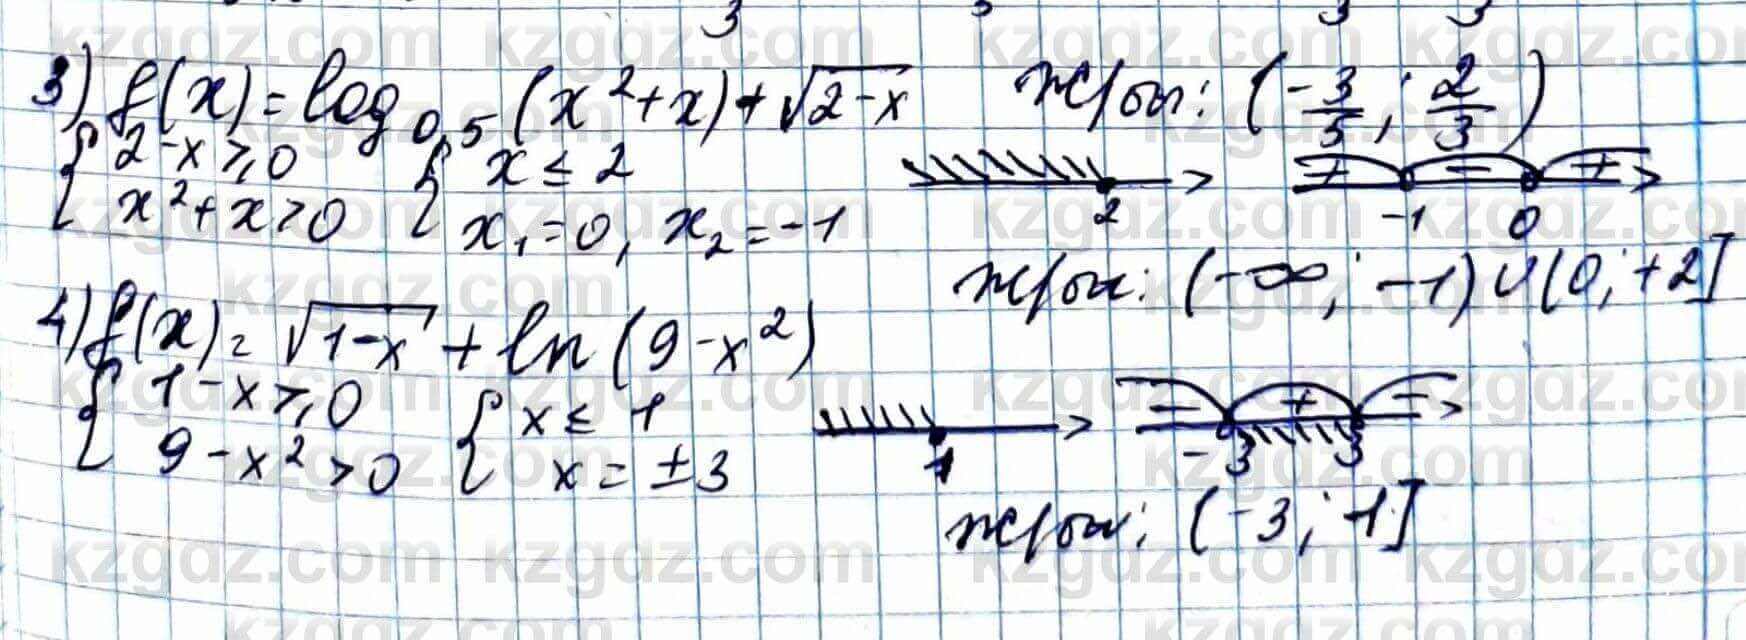 3) f(x) = log₀,₅ (x² + x) + √(2-x) Ж/бы: (-3/5; 2/3)
{ 2-x ≥ 0 { x ≤ 2
x² + x > 0 x₁ = 0, x₂ = -1
2
+ - +
-1 0
Ж/бы: (-∞; -1) ∪ (0; +2]
4) f(x) = √(1-x) + ln (9-x²)
{ 1-x ≥ 0 { x ≤ 1
9-x² > 0 x = ±3
1
- + -
-3 3
Ж/бы: (-3; 1]
kzgdz.com